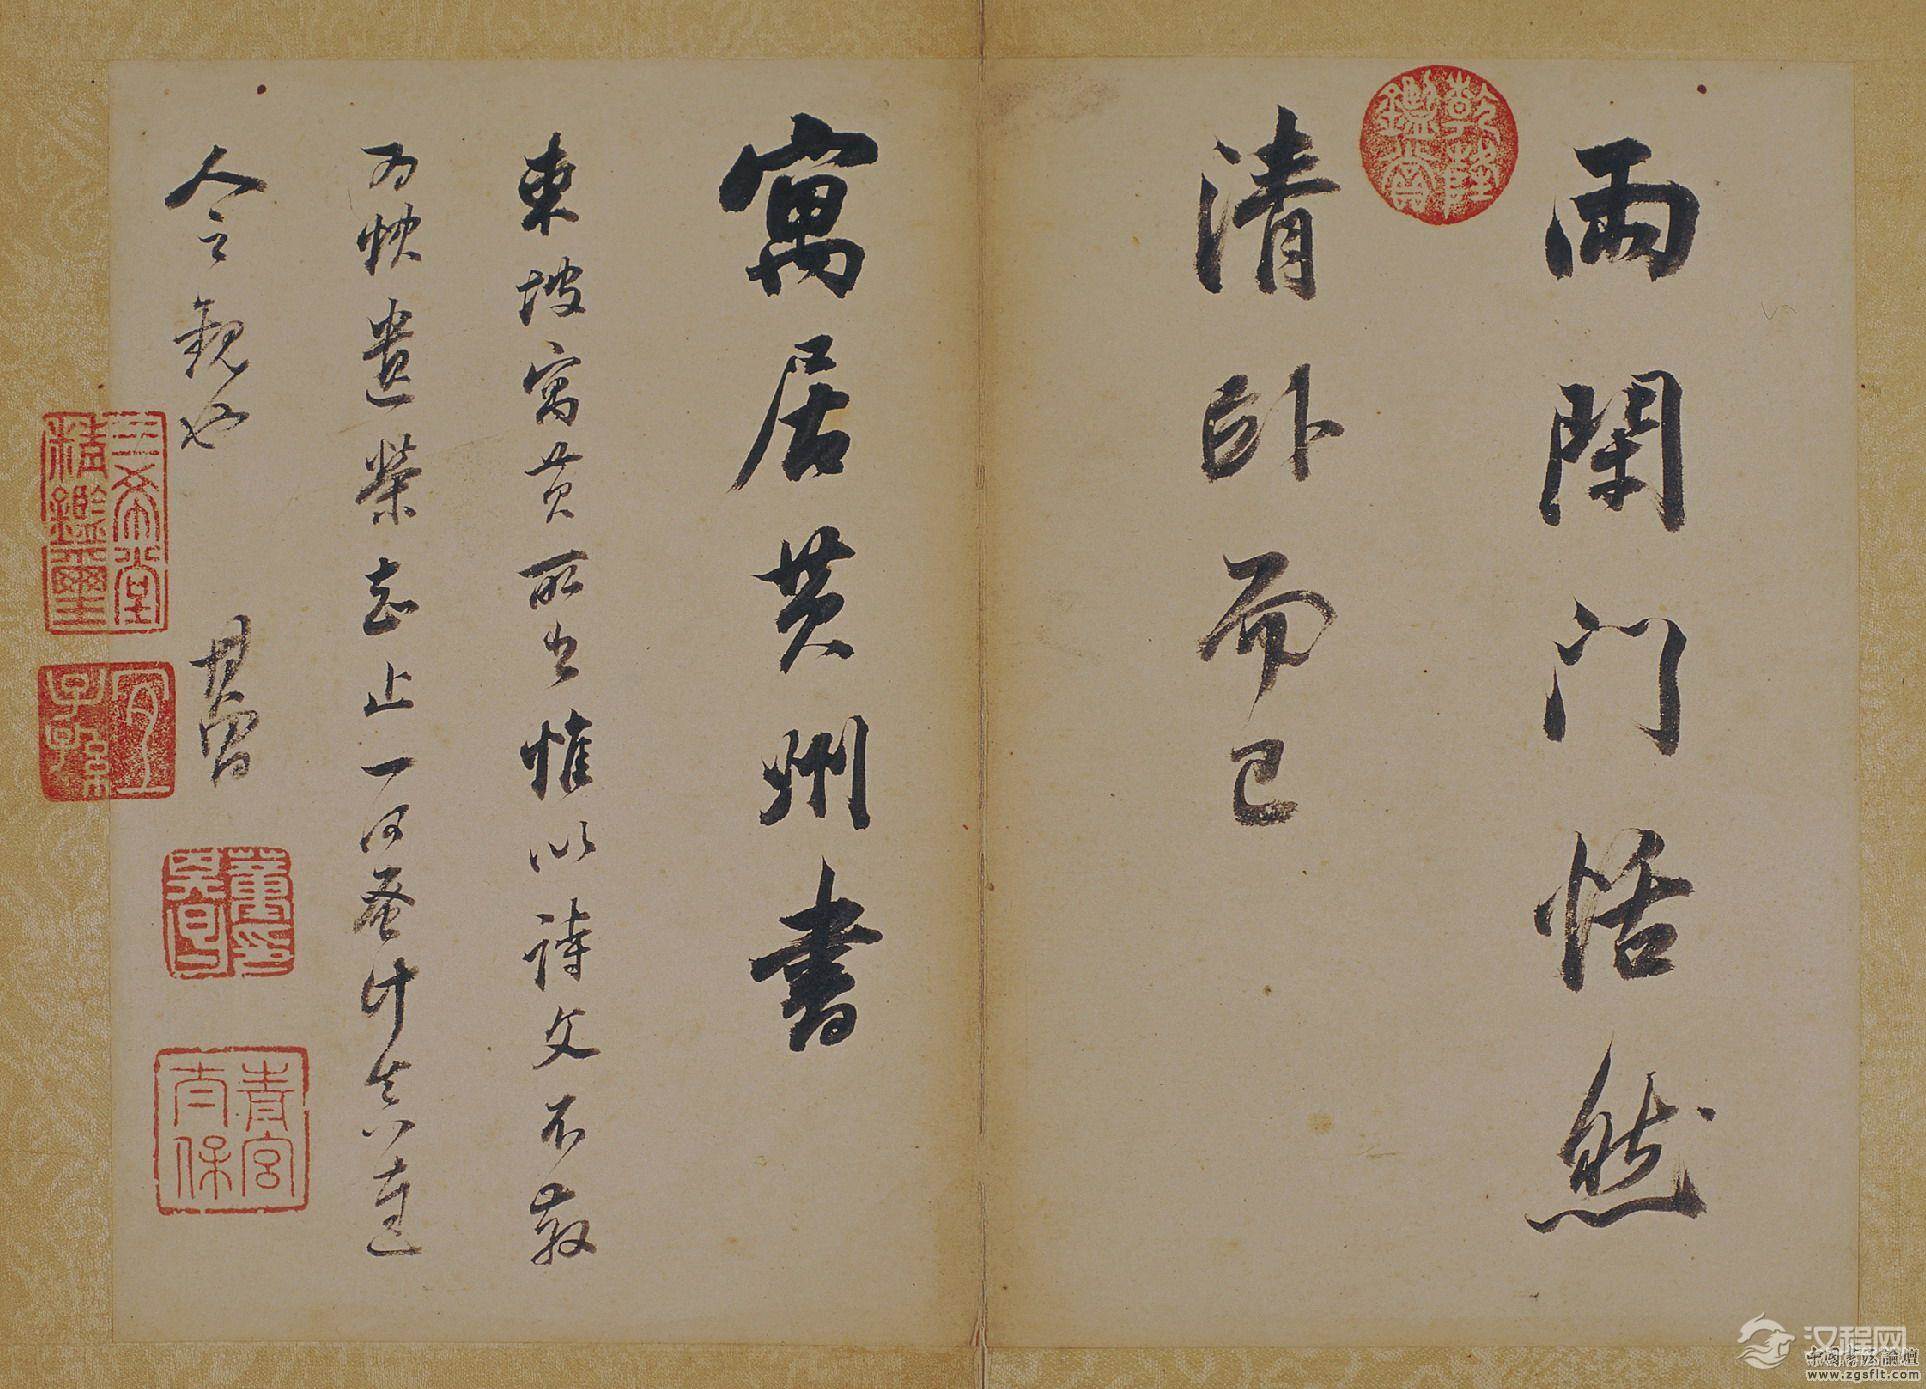 雨閉门恬然
清卧而已
寓居黄州書
東坡寓黄所出惟以詩文不敢
为快遣榮志止一何
人之觀也
其昌
乾隆鑑賞
三希堂精鑑璽
宜子孫
董其昌印
青宮太保
汉程网
中国书法論壇
www.zgsflt.com